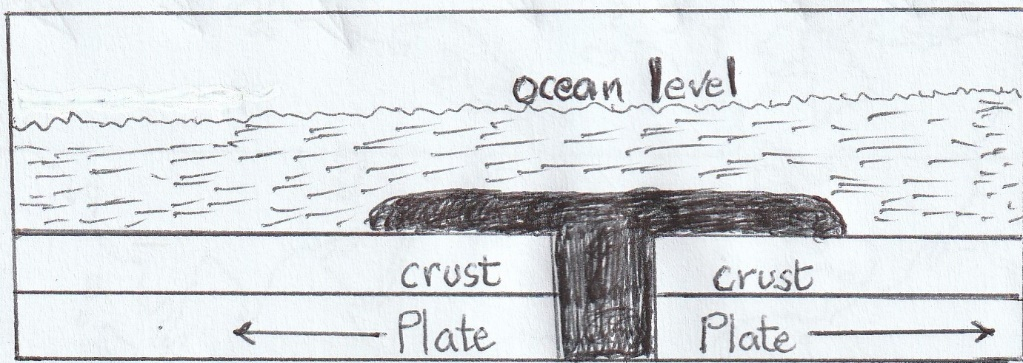 ocean level
crust crust
Plate Plate